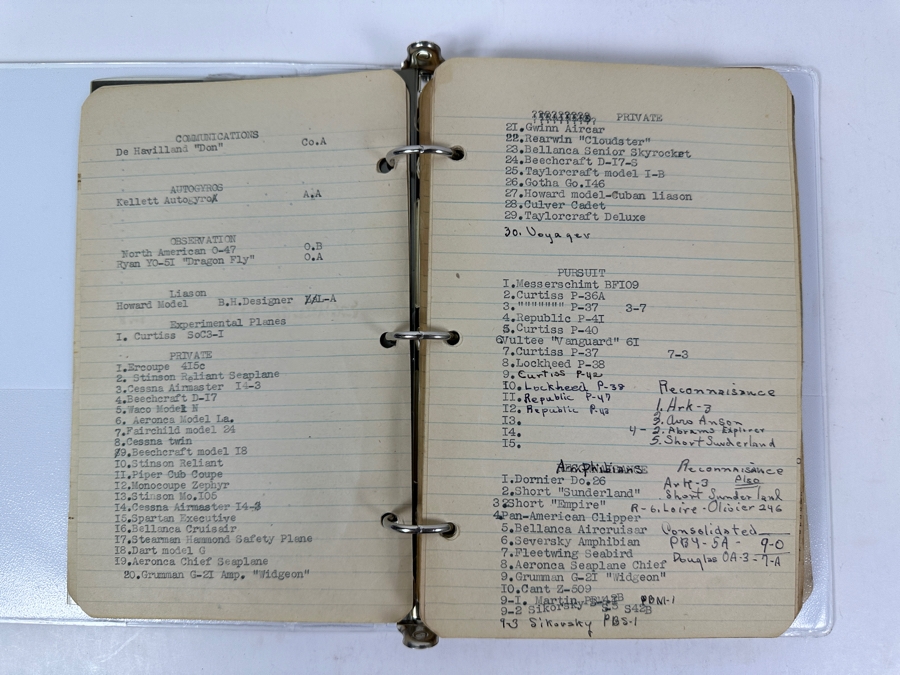 COMMUNICATIONS
De Havilland "Don" Co.A
AUTOGYROS
Kellett Autogyro A.A
OBSERVATION
North American O-47 O.B
Ryan YO-5I "Dragon Fly" O.A
Liason
Howard Model B.H.Designer L-A
Experimental Planes
I. Curtiss SoC3-I
PRIVATE
1.Ercoupe 415c
2. Stinson Reliant Seaplane
3.Cessna Airmaster I4-3
4.Beechcraft D-I7
5.Waco Model N
6. Aeronca Model La.
7.Fairchild model 24
8.Cessna twin
9.Beechcraft model I8
I0.Stinson Reliant
II.Piper Cub Coupe
I2.Monocoupe Zephyr
I3.Stinson Mo.I05
I4.Cessna Airmaster I4-3
I5.Spartan Executive
I6.Bellanca Cruisair
I7.Stearman Hammond Safety Plane
I8.Dart model G
I9.Aeronca Chief Seaplane
20.Grumman G-2I Amp. "Widgeon"
PRIVATE
2I.Gwinn Aircar
22.Rearwin "Cloudster"
23.Bellanca Senior Skyrocket
24.Beechcraft D-I7-S
25.Taylorcraft model I-B
26.Gotha Go.I46
27.Howard model-Cuban liason
28.Culver Cadet
29.Taylorcraft Deluxe
30. Voyager
PURSUIT
I.Messerschimt BFIO9
2.Curtiss P-36A
3."""""""" P-37 3-7
4.Republic P-4I
5.Curtiss P-40
6Vultee "Vanguard" 6I
7.Curtiss P-37 7-3
8.Lockheed P-38
9.Curtiss P-42
IO.Lockheed P-38
II.Republic P-47
I2.Republic P-43
I3.
I4.
I5.
Reconnaisance
1. Ark-3
3. Avro Anson
4-2. Abrams Explorer
5. Short Sunderland
Amphibians
I.Dornier Do.26
2.Short "Sunderland"
3.Short "Empire"
4Pan-American Clipper
5.Bellanca Aircruiser
6.Seversky Amphibian
7.Fleetwing Seabird
8.Aeronca Seaplane Chief
9.Grumman G-2I "Widgeon"
IO.Cant Z-509
9-I. Martin PBM-1
9-2 Sikorsky S42B
9-3 Sikorsky PBS-1
Reconnaisance
Ark-3 Also
Short Sunderland
R-6. Loire-Olivier 246
Consolidated
PBY-5A - 9-0
Douglas OA-3 - 7-A